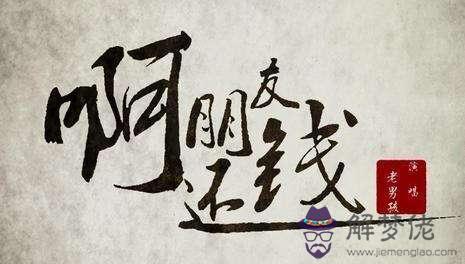 啊朋友还钱
演唱
老男孩
解梦佬
www.jiemenglao.com